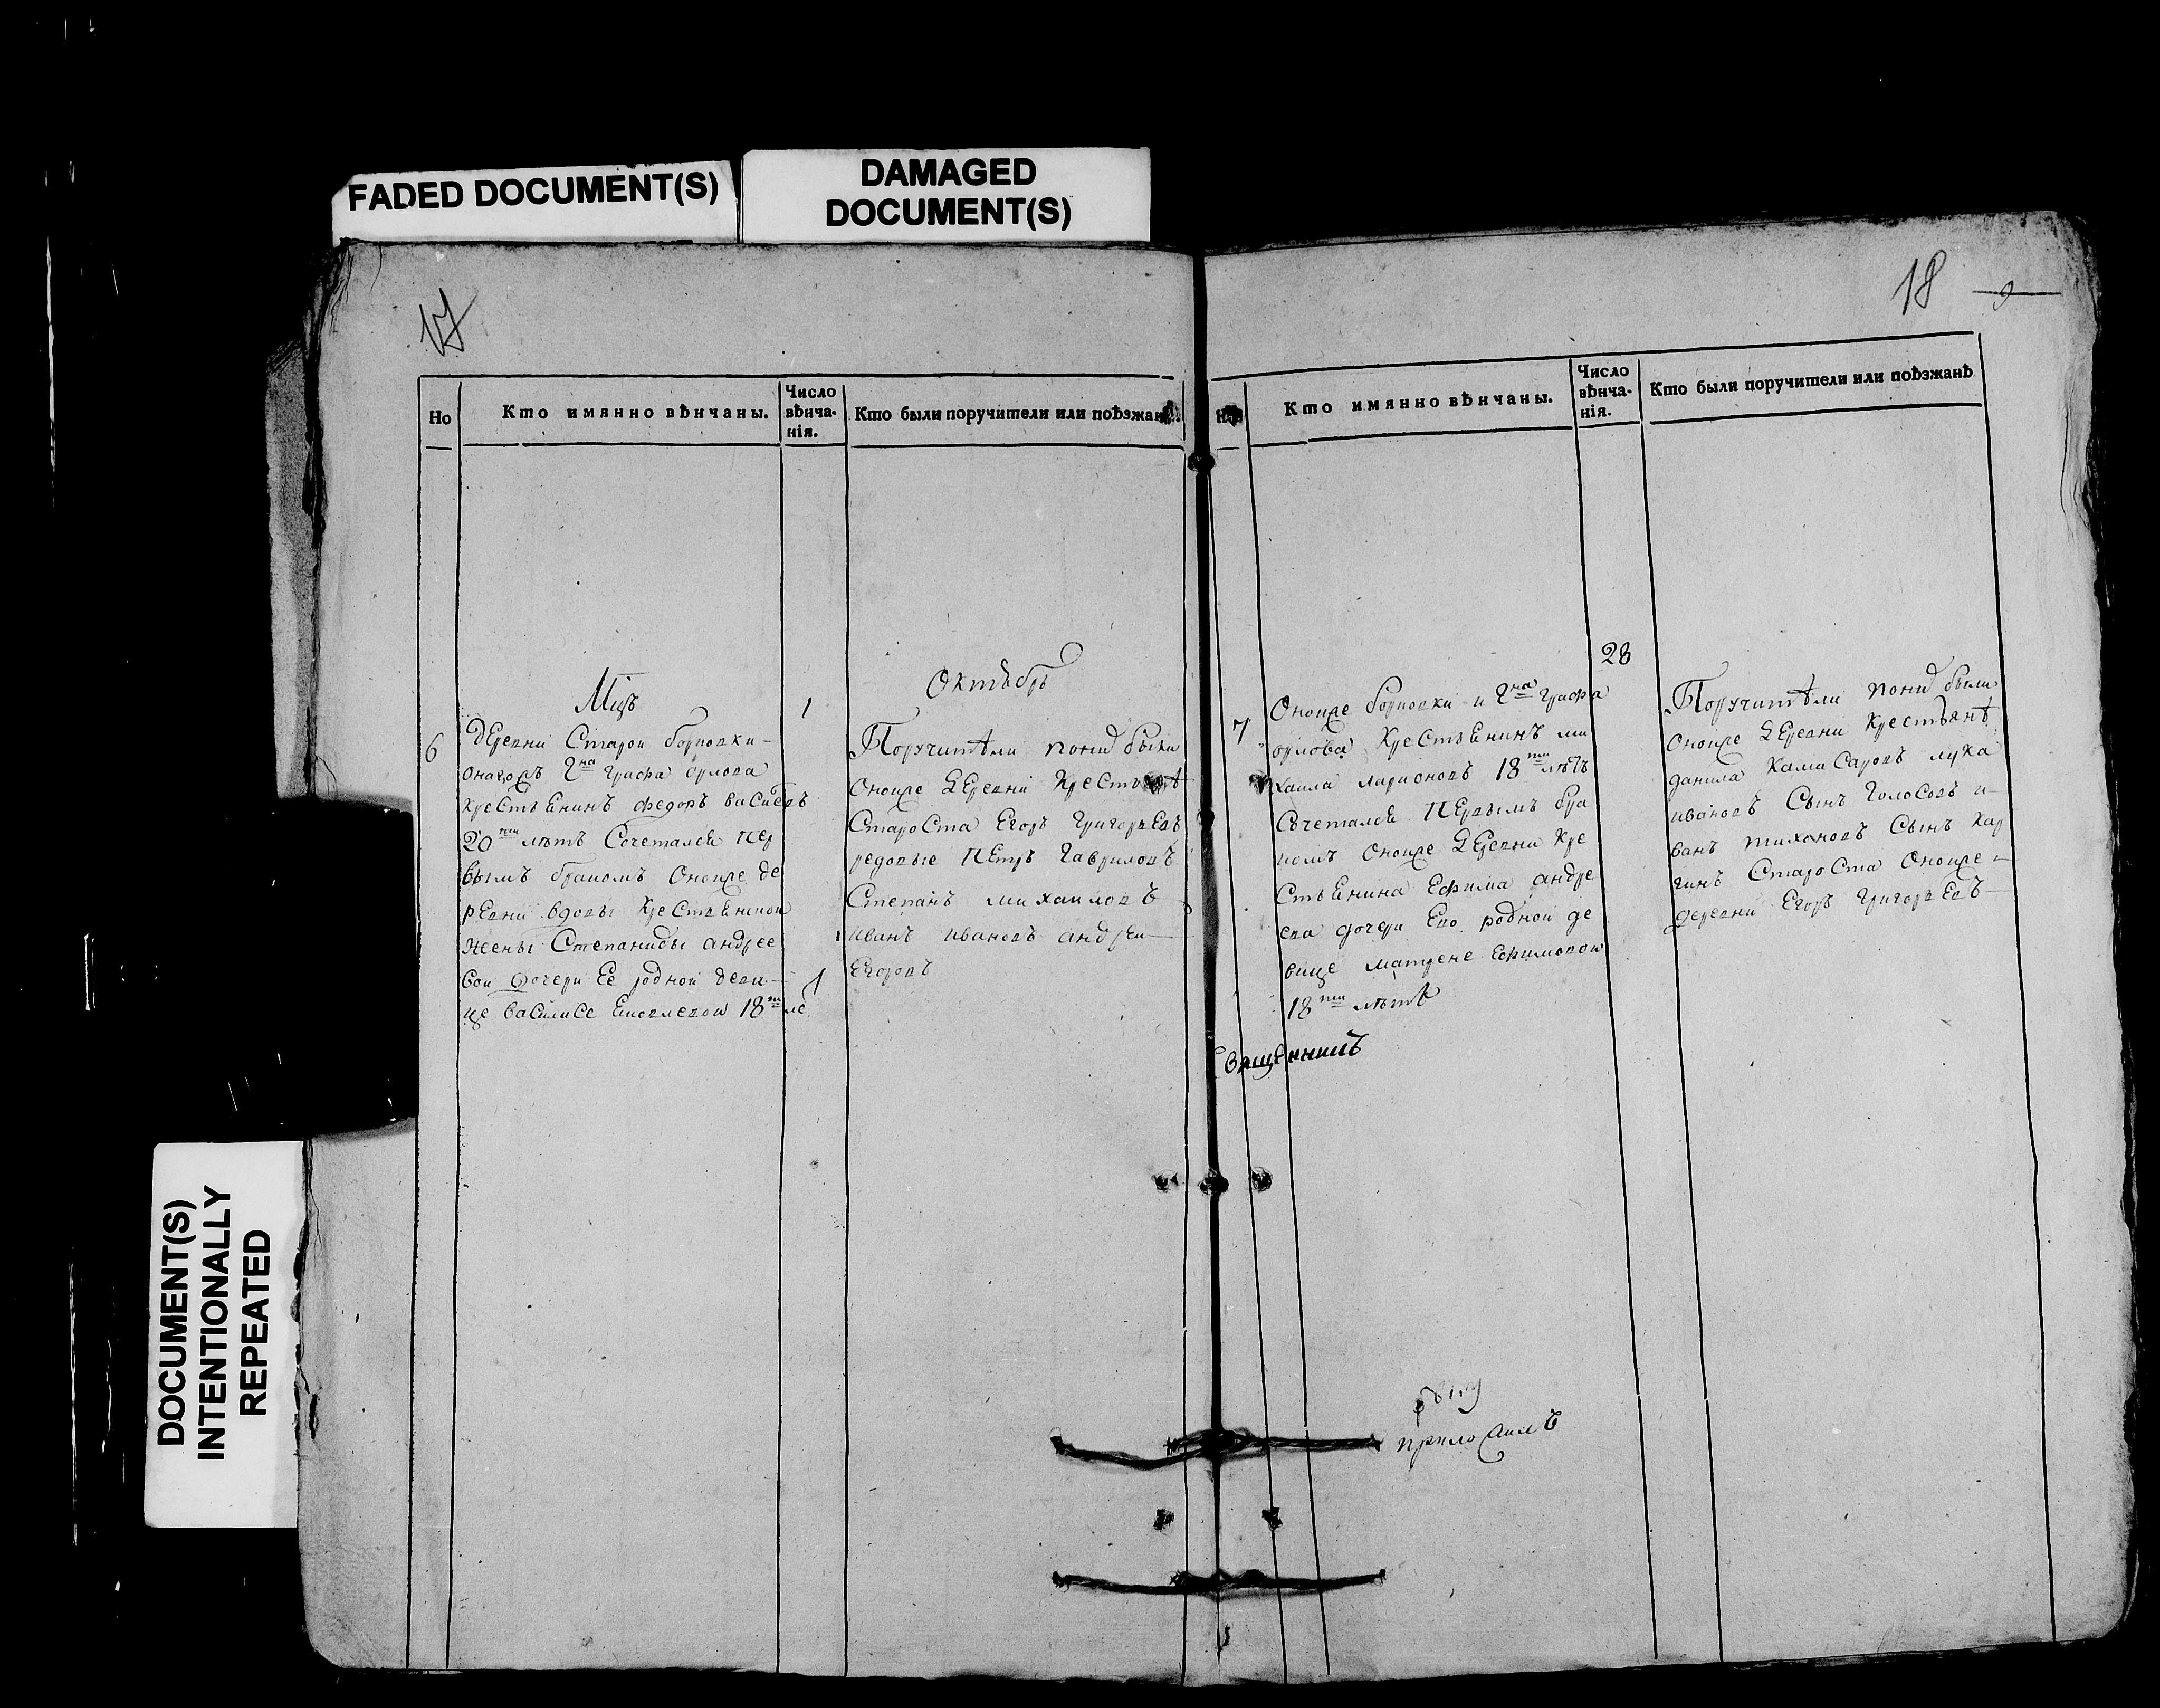 FADED DOCUMENT(S)
DAMAGED
DOCUMENT(S)
DOCUMENT(S)
INTENTIONALLY
REPEATED
17
Но
Кто имянно вѣнчаны.
Число
вѣнча-
нія.
Кто были поручители или поѣзжан
Мцъ
Октябрь
6
1
деревни Старои борновки
онагожъ Гна графа орлова
крестьенинъ федоръ василевъ
20ти лѣтъ Сочетался пер
вымъ бракомъ оноиже де
ревни вдовы крестьенскои
жены Степаниды андрее
вои дочери Ее родной деви
це василисе 18ти ле
1
Поручители
оноиже деревни
Староста Егоръ григорьевъ
редовые Петръ Гавриловъ
Степанъ михаиловъ
иванъ ивановъ андреи
Егоровъ
18
Кто имянно вѣнчаны.
Число
вѣнча-
нія.
Кто были поручители или поѣзжанѣ
28
7
Оноиже борновки и Гна графа
орлова крестьенинъ ми
хаила ларионовъ 18ти лѣтъ
Сочетался первымъ бра
комъ оноиже деревни кре
стьенина Ефима андре
ева дочери Ево родной де
вице матрене Ефимовои
18ти лѣтъ
Поручители по них были
оноиже деревни крестьянѣ
данила камисаровъ лука
ивановъ Сынъ голосовъ и
ванъ тихоновъ Сынъ кар
гинъ Староста оноиже
деревни Егоръ григорьевъ
Священникъ
руку
приложилъ